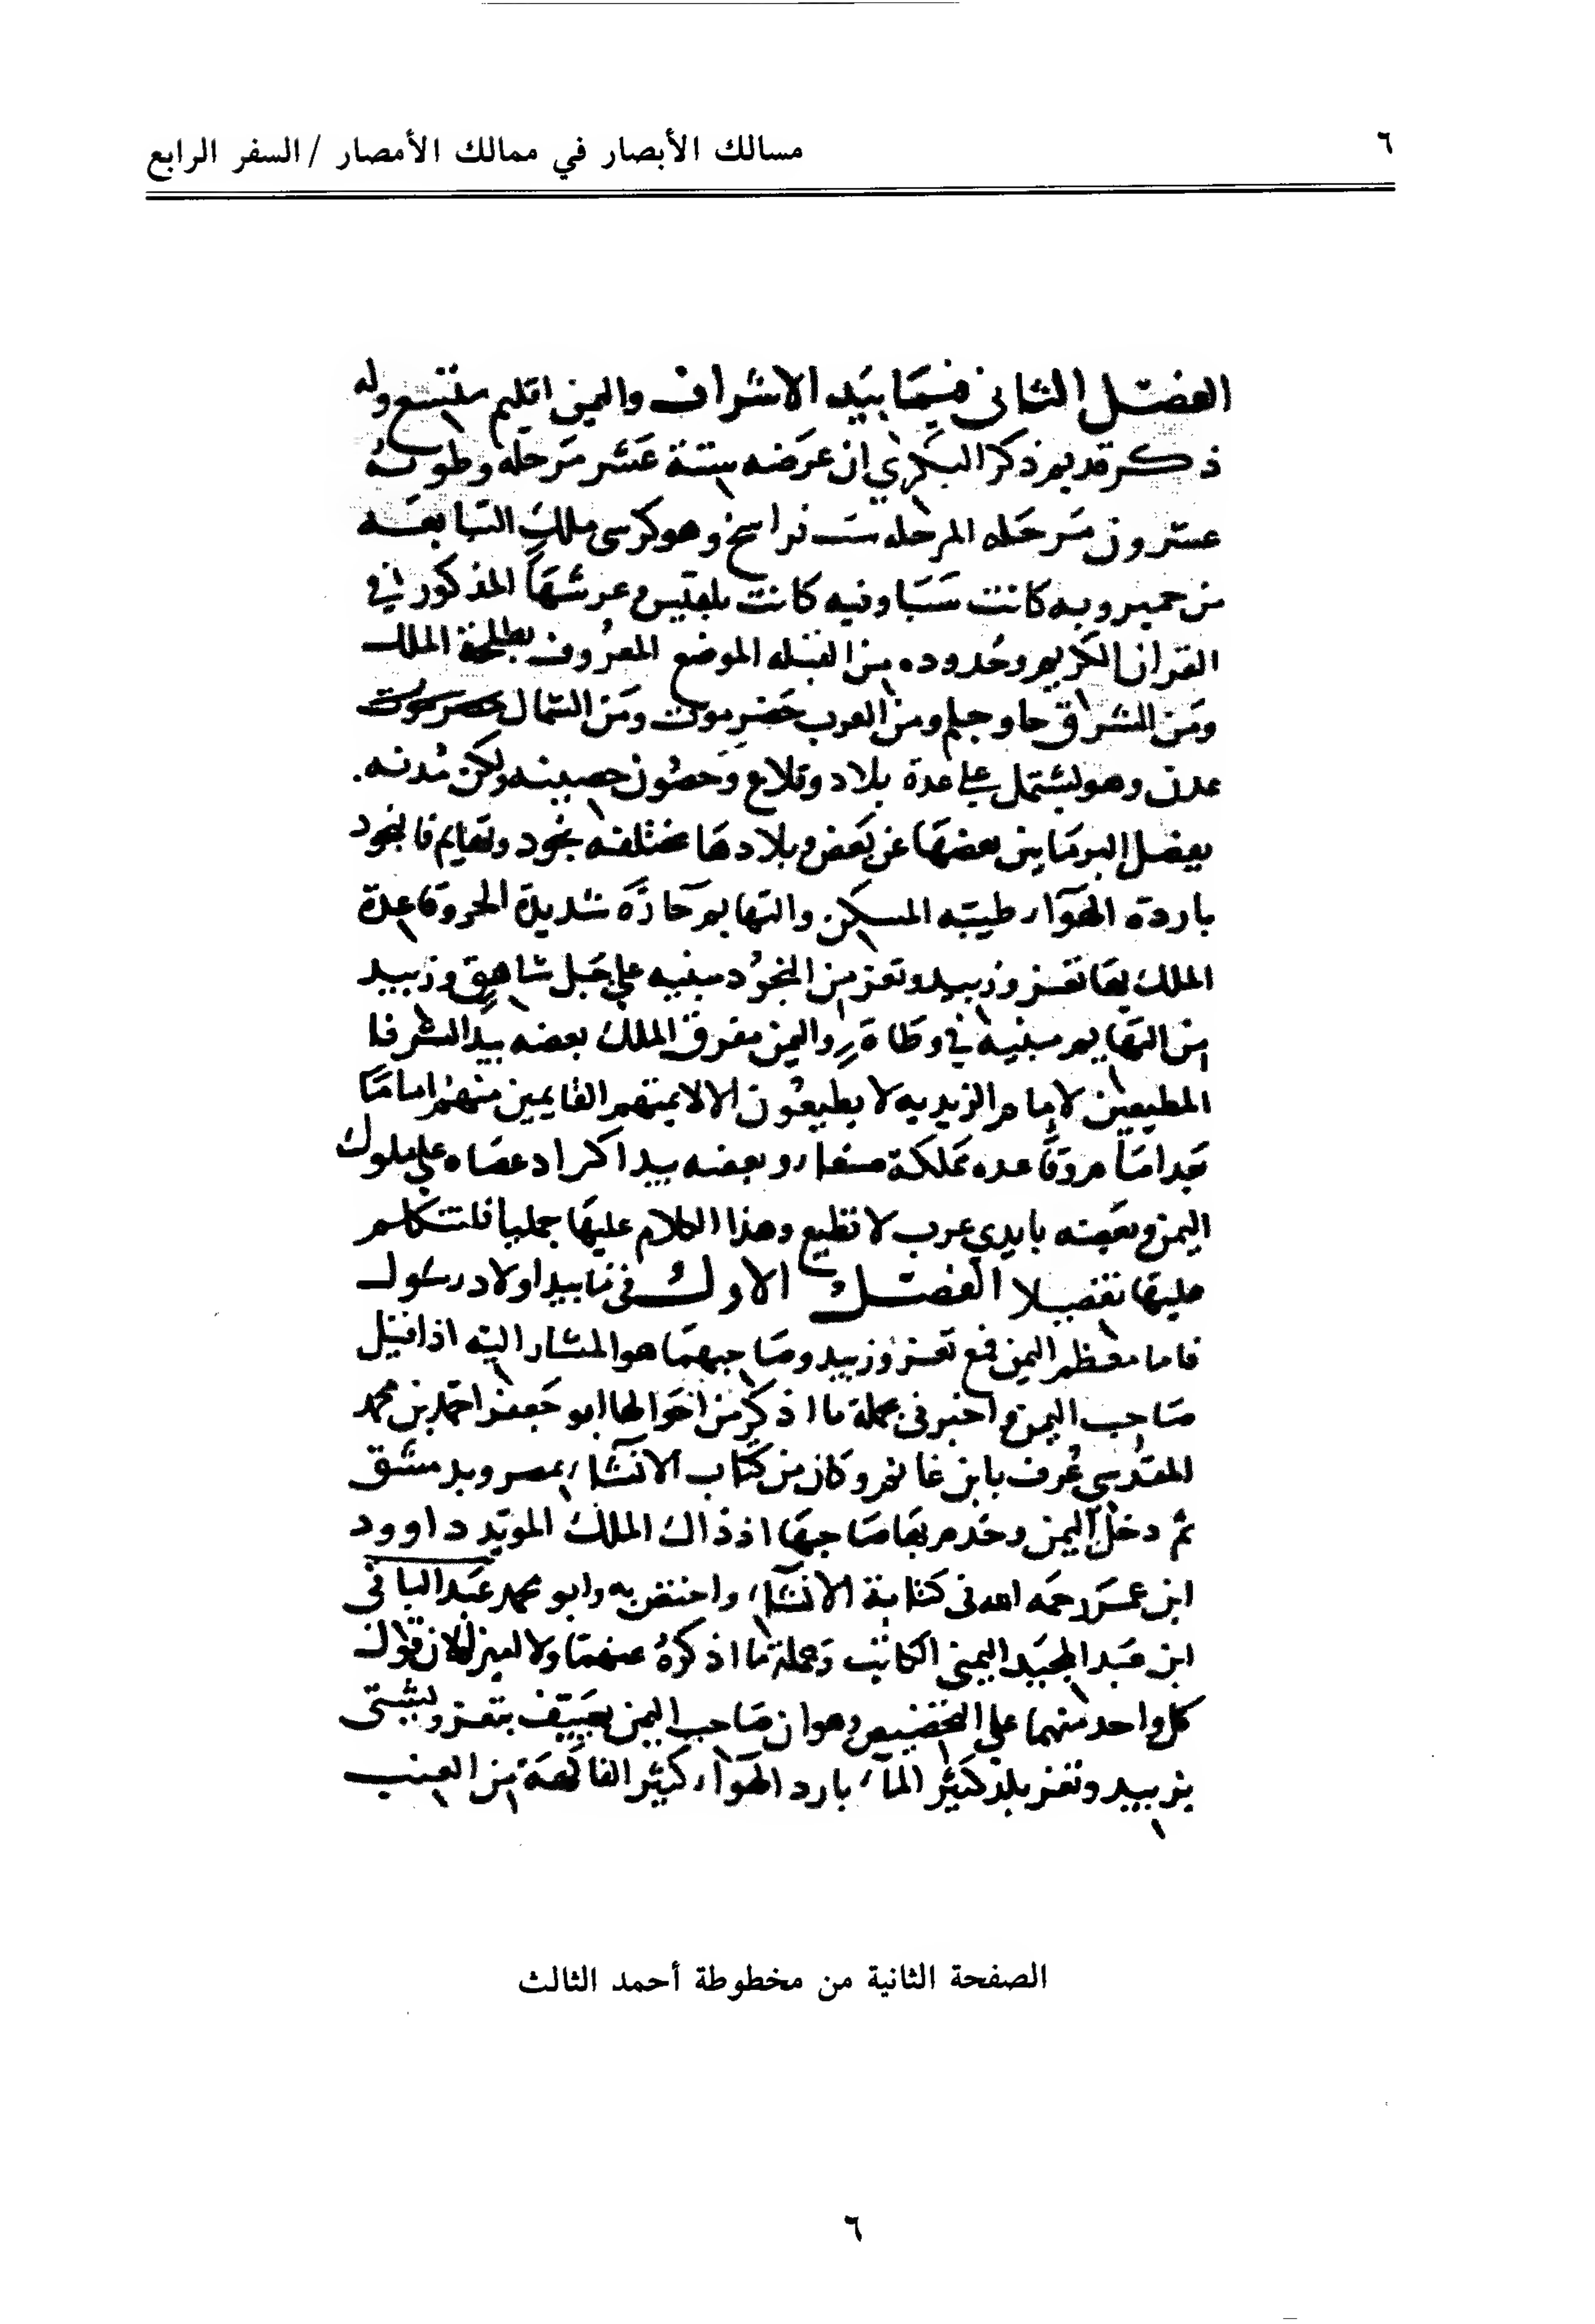 ٦
مسالك الأبصار في ممالك الأمصار / السفر الرابع
الفصل الثاني فيما بيد الاشراف واليمن اقليم متسع وله
ذكر قديم ذكر البكري ان عرضه ستة عشر مرحله وطوله
عشرون مرحله المرحله ست فراسخ وهو كرسي ملك التبابعه
من حمير وبه كانت سبا وفيه كانت بلقيس وعرشها المذكور في
القران الكريم وحدوده من القبله الموضع المعروف بطلحة الملك
ومن الشراق حا وجلم ومن الغرب حضرموت ومن الشمال
عدن وهو يشتمل على عدة بلاد وقلاع وحصون حصينه ولكن مدنه
يفصل البر ما بين بعضها عن بعض وبلادها مختلفه نجود وتهايم فالنجود
باردة الهواء طيبه المسكن والتهايم حارة شديدة الحر وقاعدة
الملك بها تعز وزبيد وتعز من النجود مبنيه على جبل شاهق وزبيد
من التهايم مبنيه في وطاة واليمن مفرق الملك بعضه بيد الشرفا
المطيعين لامام الزيديه لا يطيعون الا لايمتهم القايمين منهم اماما
بعد امام وقاعده مملكة صنعاء وبعضه بيد اكراد عصاه على ملوك
اليمن وبعضه بايدي عرب لا تطيع وهذا الكلام عليها جمليا فلنتكلم
عليها تفصيلا الفصل الاول في ما بيد اولاد رسول
فاما معظم اليمن فمع تعز وزبيد وصاحبهما هو المشار اليه اذا قيل
صاحب اليمن واخبرني بجملة ما اذكر من احوالها ابو جعفر احمد بن محمد
المقدسي عرف بابن غانم وكان من كتاب الانشاء بمصر وبدمشق
ثم دخل اليمن وخدم بها صاحبها اذ ذاك الملك المويد داوود
ابن عمر رحمه الله في كتابة الانشاء واختص به وابو محمد عبد الباقي
ابن عبد المجيد اليمني الكاتب وجملة ما اذكره عنهما ولا اميز الان قول
كل واحد منهما على التخصيص وهو ان صاحب اليمن يصيف بتعز ويشتي
بزبيد وتعز بلد كثير الماء بارد الهواء كثير الفاكهة من العنب
الصفحة الثانية من مخطوطة أحمد الثالث
٦